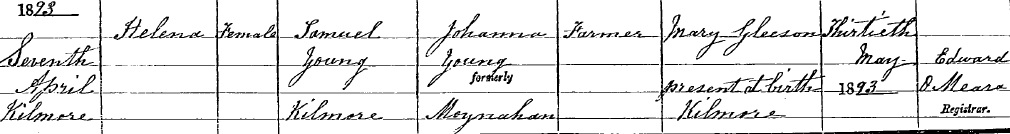 1893
Helena Female Samuel Johanna Farmer Mary Gleeson Thirtieth
Seventh Young Young May Edward
April formerly present at birth 1893 O Meara
Kilmore Kilmore Moynahan Kilmore Registrar.